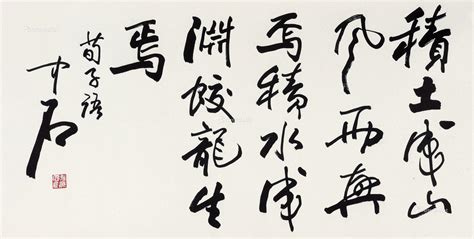 積土成山
風雨興
焉積水成
淵蛟龍生
焉
荀子語
中石